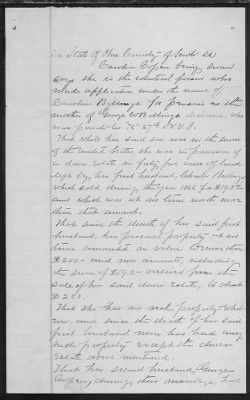 The State of Ohio County of ss
Caroline being sworn
says she is the identical person who
made application under the name of
Caroline Billings for pension as the
mother of George W Billings deceased, who
was private Co "K" 57" O.V.I.
That while her said son was in the service
of the United States, she was in possession of
a dower estate on forty five acres of land
left by her first husband, Charles Billings
which sold during the year 186 for
and which was at no time worth more
than that amount.
That since the death of her said first
husband her personal property at no
time amounted in value to more than
$200 and now amounts, including
the sum of received from the
sale of her said dower estate, to about
$200.
That she has no real property what
ever, and since the death of her said
first husband never has had any
such property except the dower
estate above mentioned.
That her second husband, George
during their marriage, had